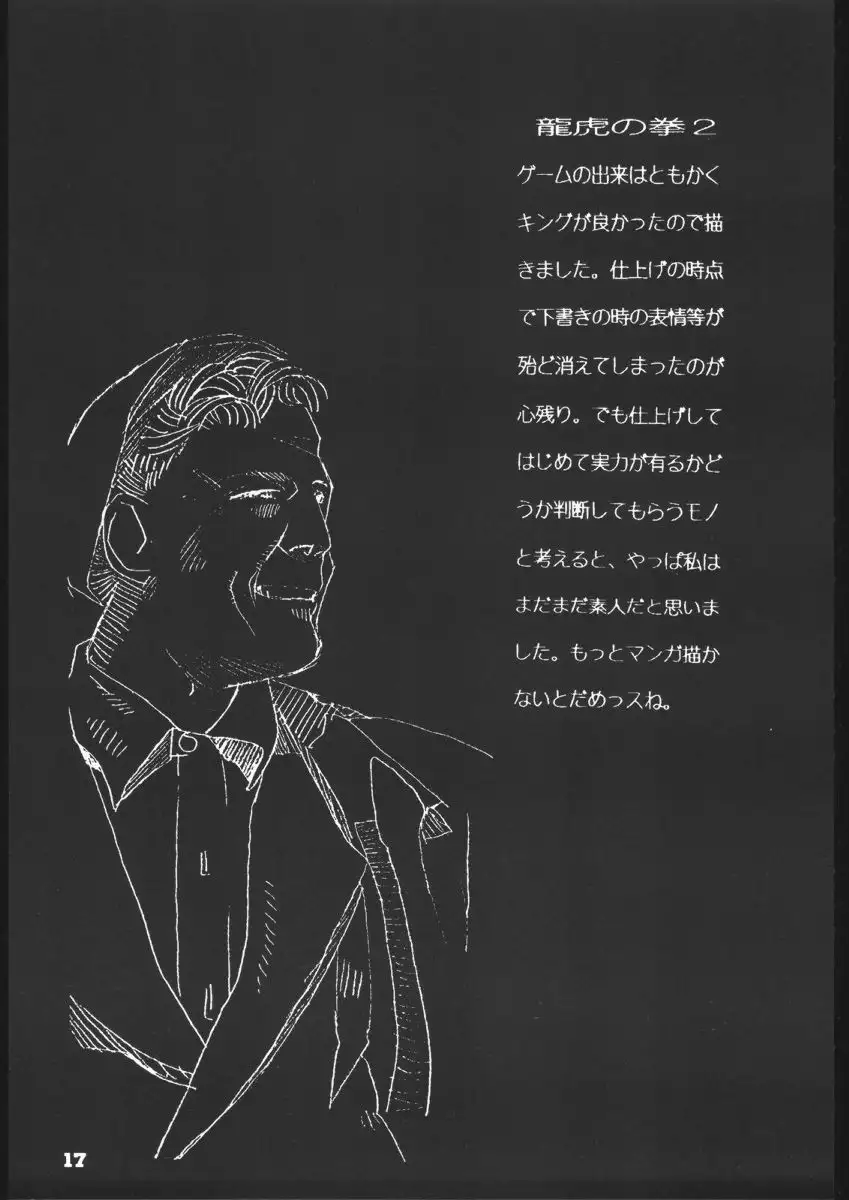 龍虎の拳２
ゲームの出来はともかく
キングが良かったので描
きました。仕上げの時点
で下書きの時の表情等が
殆ど消えてしまったのが
心残り。でも仕上げして
はじめて実力が有るかど
うか判断してもらうモノ
と考えると、やっぱ私は
まだまだ素人だと思いま
した。もっとマンガ描か
ないとだめっスね。
17